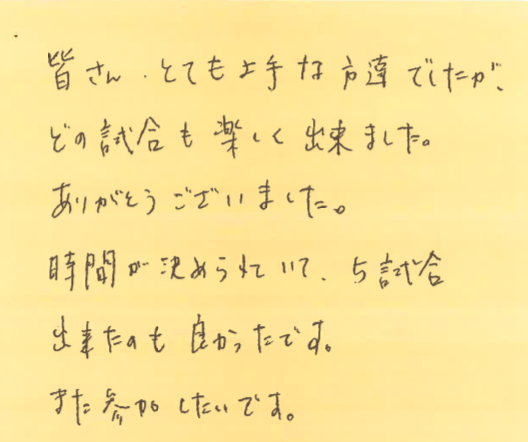 皆さん、とても上手な方達でしたが、
どの試合も楽しく出来ました。
ありがとうございました。
時間が決められていて、5試合
出来たのも良かったです。
また参加したいです。